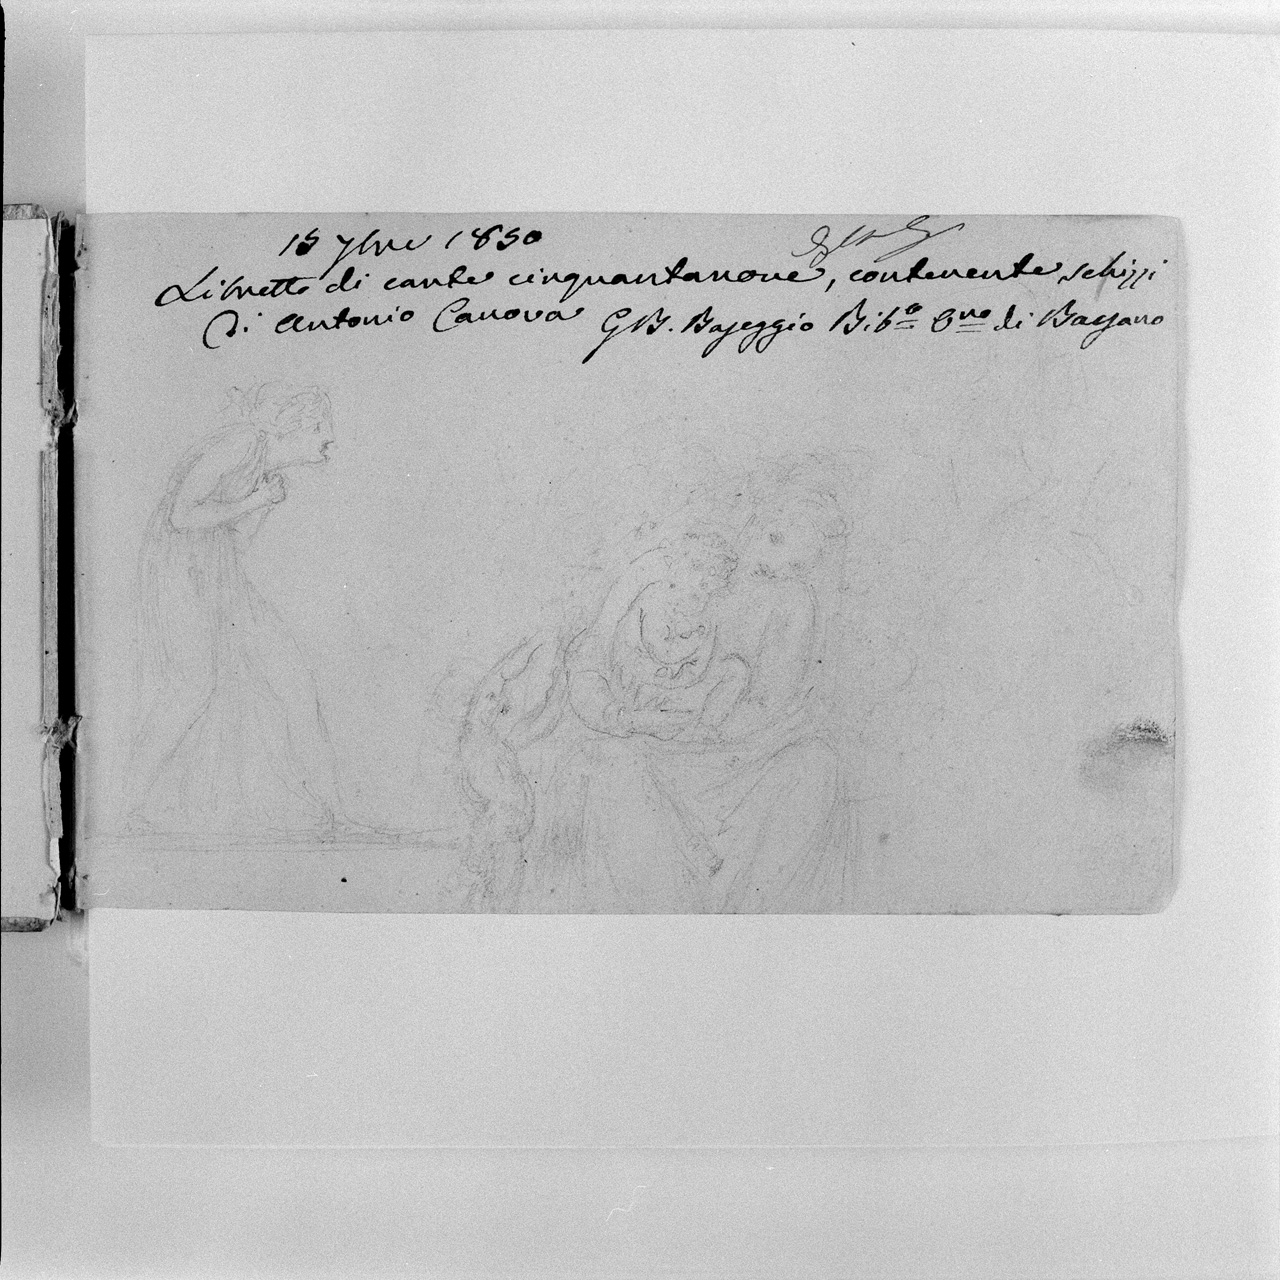 15 7bre 1850
Libretto di carte cinquantanove, contenente schizzi
di Antonio Canova GB. Baseggio Bib.º O.no di Bassano